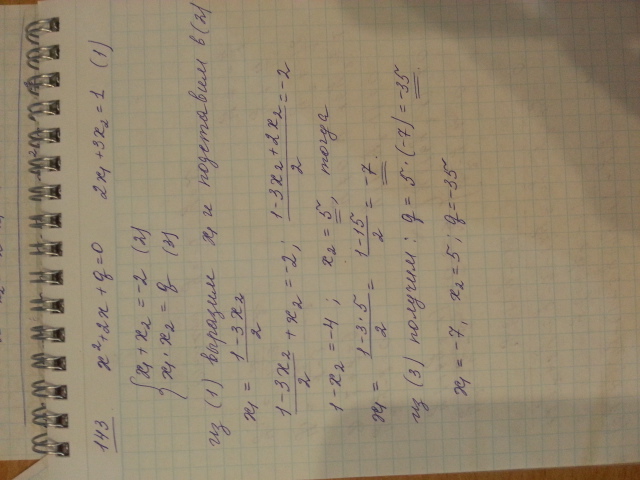 143 x²+2x+q=0 2x₁+3x₂=1 (1)
{ x₁+x₂=-2 (2)
x₁·x₂=q (3)
из (1) выразим x₁ и подставим в (2)
x₁ = (1-3x₂)/2
(1-3x₂)/2 + x₂ = -2; (1-3x₂+2x₂)/2 = -2
1-x₂ = -4; x₂ = 5, тогда
x₁ = (1-3·5)/2 = (1-15)/2 = -7.
из (3) получим: q = 5·(-7) = -35
x₁ = -7; x₂ = 5; q = -35